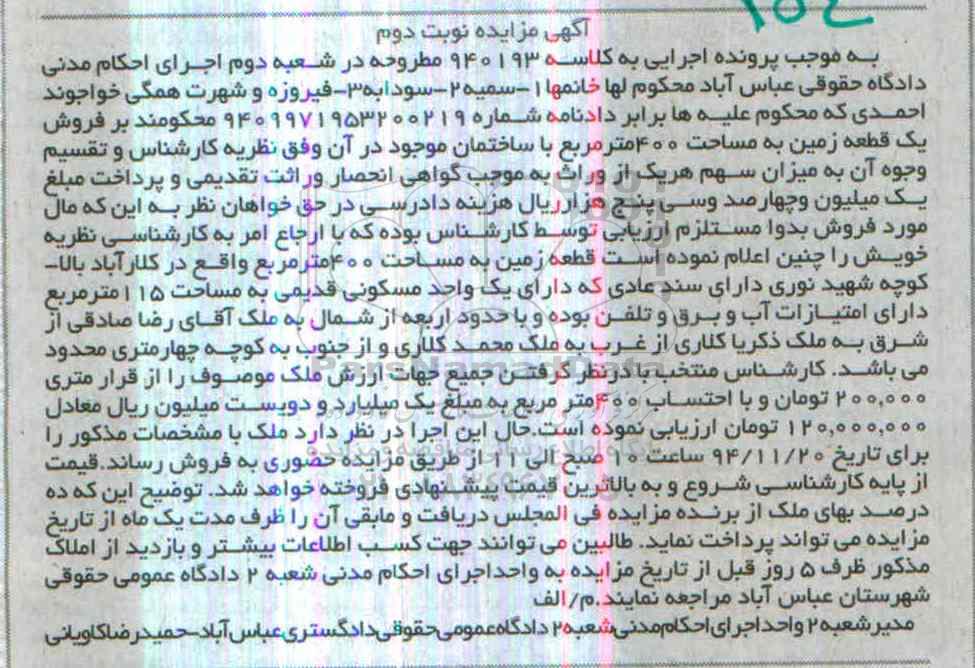 102
آگهی مزایده نوبت دوم
به موجب پرونده اجرایی به کلاسه ۹۴۰۱۹۳ مطروحه در شعبه دوم اجرای احکام مدنی
دادگاه حقوقی عباس آباد محکوم لها خانمها۱-سمیه۲-سودابه۳-فیروزه و شهرت همگی خواجوند
احمدی که محکوم علیه ها برابر دادنامه شماره ۹۴۰۹۹۷۱۹۵۳۲۰۰۲۱۹ محکومند بر فروش
یک قطعه زمین به مساحت ۴۰۰مترمربع با ساختمان موجود در آن وفق نظریه کارشناس و تقسیم
وجوه آن به میزان سهم هریک از وراث به موجب گواهی انحصار وراثت تقدیمی و پرداخت مبلغ
یک میلیون وچهارصد وسی پنج هزارریال هزینه دادرسی در حق خواهان نظر به این که مال
مورد فروش بدوا مستلزم ارزیابی توسط کارشناس بوده که با ارجاع امر به کارشناسی نظریه
خویش را چنین اعلام نموده است قطعه زمین به مساحت ۴۰۰مترمربع واقع در کلارآباد بالا-
کوچه شهید نوری دارای سند عادی که دارای یک واحد مسکونی قدیمی به مساحت ۱۱۵مترمربع
دارای امتیازات آب و برق و تلفن بوده و با حدود اربعه از شمال به ملک آقای رضا صادقی از
شرق به ملک ذکریا کلاری از غرب به ملک محمد کلاری و از جنوب به کوچه چهارمتری محدود
می باشد. کارشناس منتخب با درنظر گرفتن جمیع جهات ارزش ملک موصوف را از قرار متری
۲۰۰,۰۰۰ تومان و با احتساب ۴۰۰متر مربع به مبلغ یک میلیارد و دویست میلیون ریال معادل
۱۲۰,۰۰۰,۰۰۰ تومان ارزیابی نموده است.حال این اجرا در نظر دارد ملک با مشخصات مذکور را
برای تاریخ ۹۴/۱۱/۲۰ ساعت ۱۰ صبح الی ۱۱ از طریق مزایده حضوری به فروش رساند.قیمت
از پایه کارشناسی شروع و به بالاترین قیمت پیشنهادی فروخته خواهد شد. توضیح این که ده
درصد بهای ملک از برنده مزایده فی المجلس دریافت و مابقی آن را ظرف مدت یک ماه از تاریخ
مزایده می تواند پرداخت نماید. طالبین می توانند جهت کسب اطلاعات بیشتر و بازدید از املاک
مذکور ظرف ۵ روز قبل از تاریخ مزایده به واحداجرای احکام مدنی شعبه ۲ دادگاه عمومی حقوقی
شهرستان عباس آباد مراجعه نمایند.م/الف
مدیر شعبه ۲ واحداجرای احکام مدنی شعبه ۲ دادگاه عمومی حقوقی دادگستری عباس آباد-حمیدرضا کاویانی